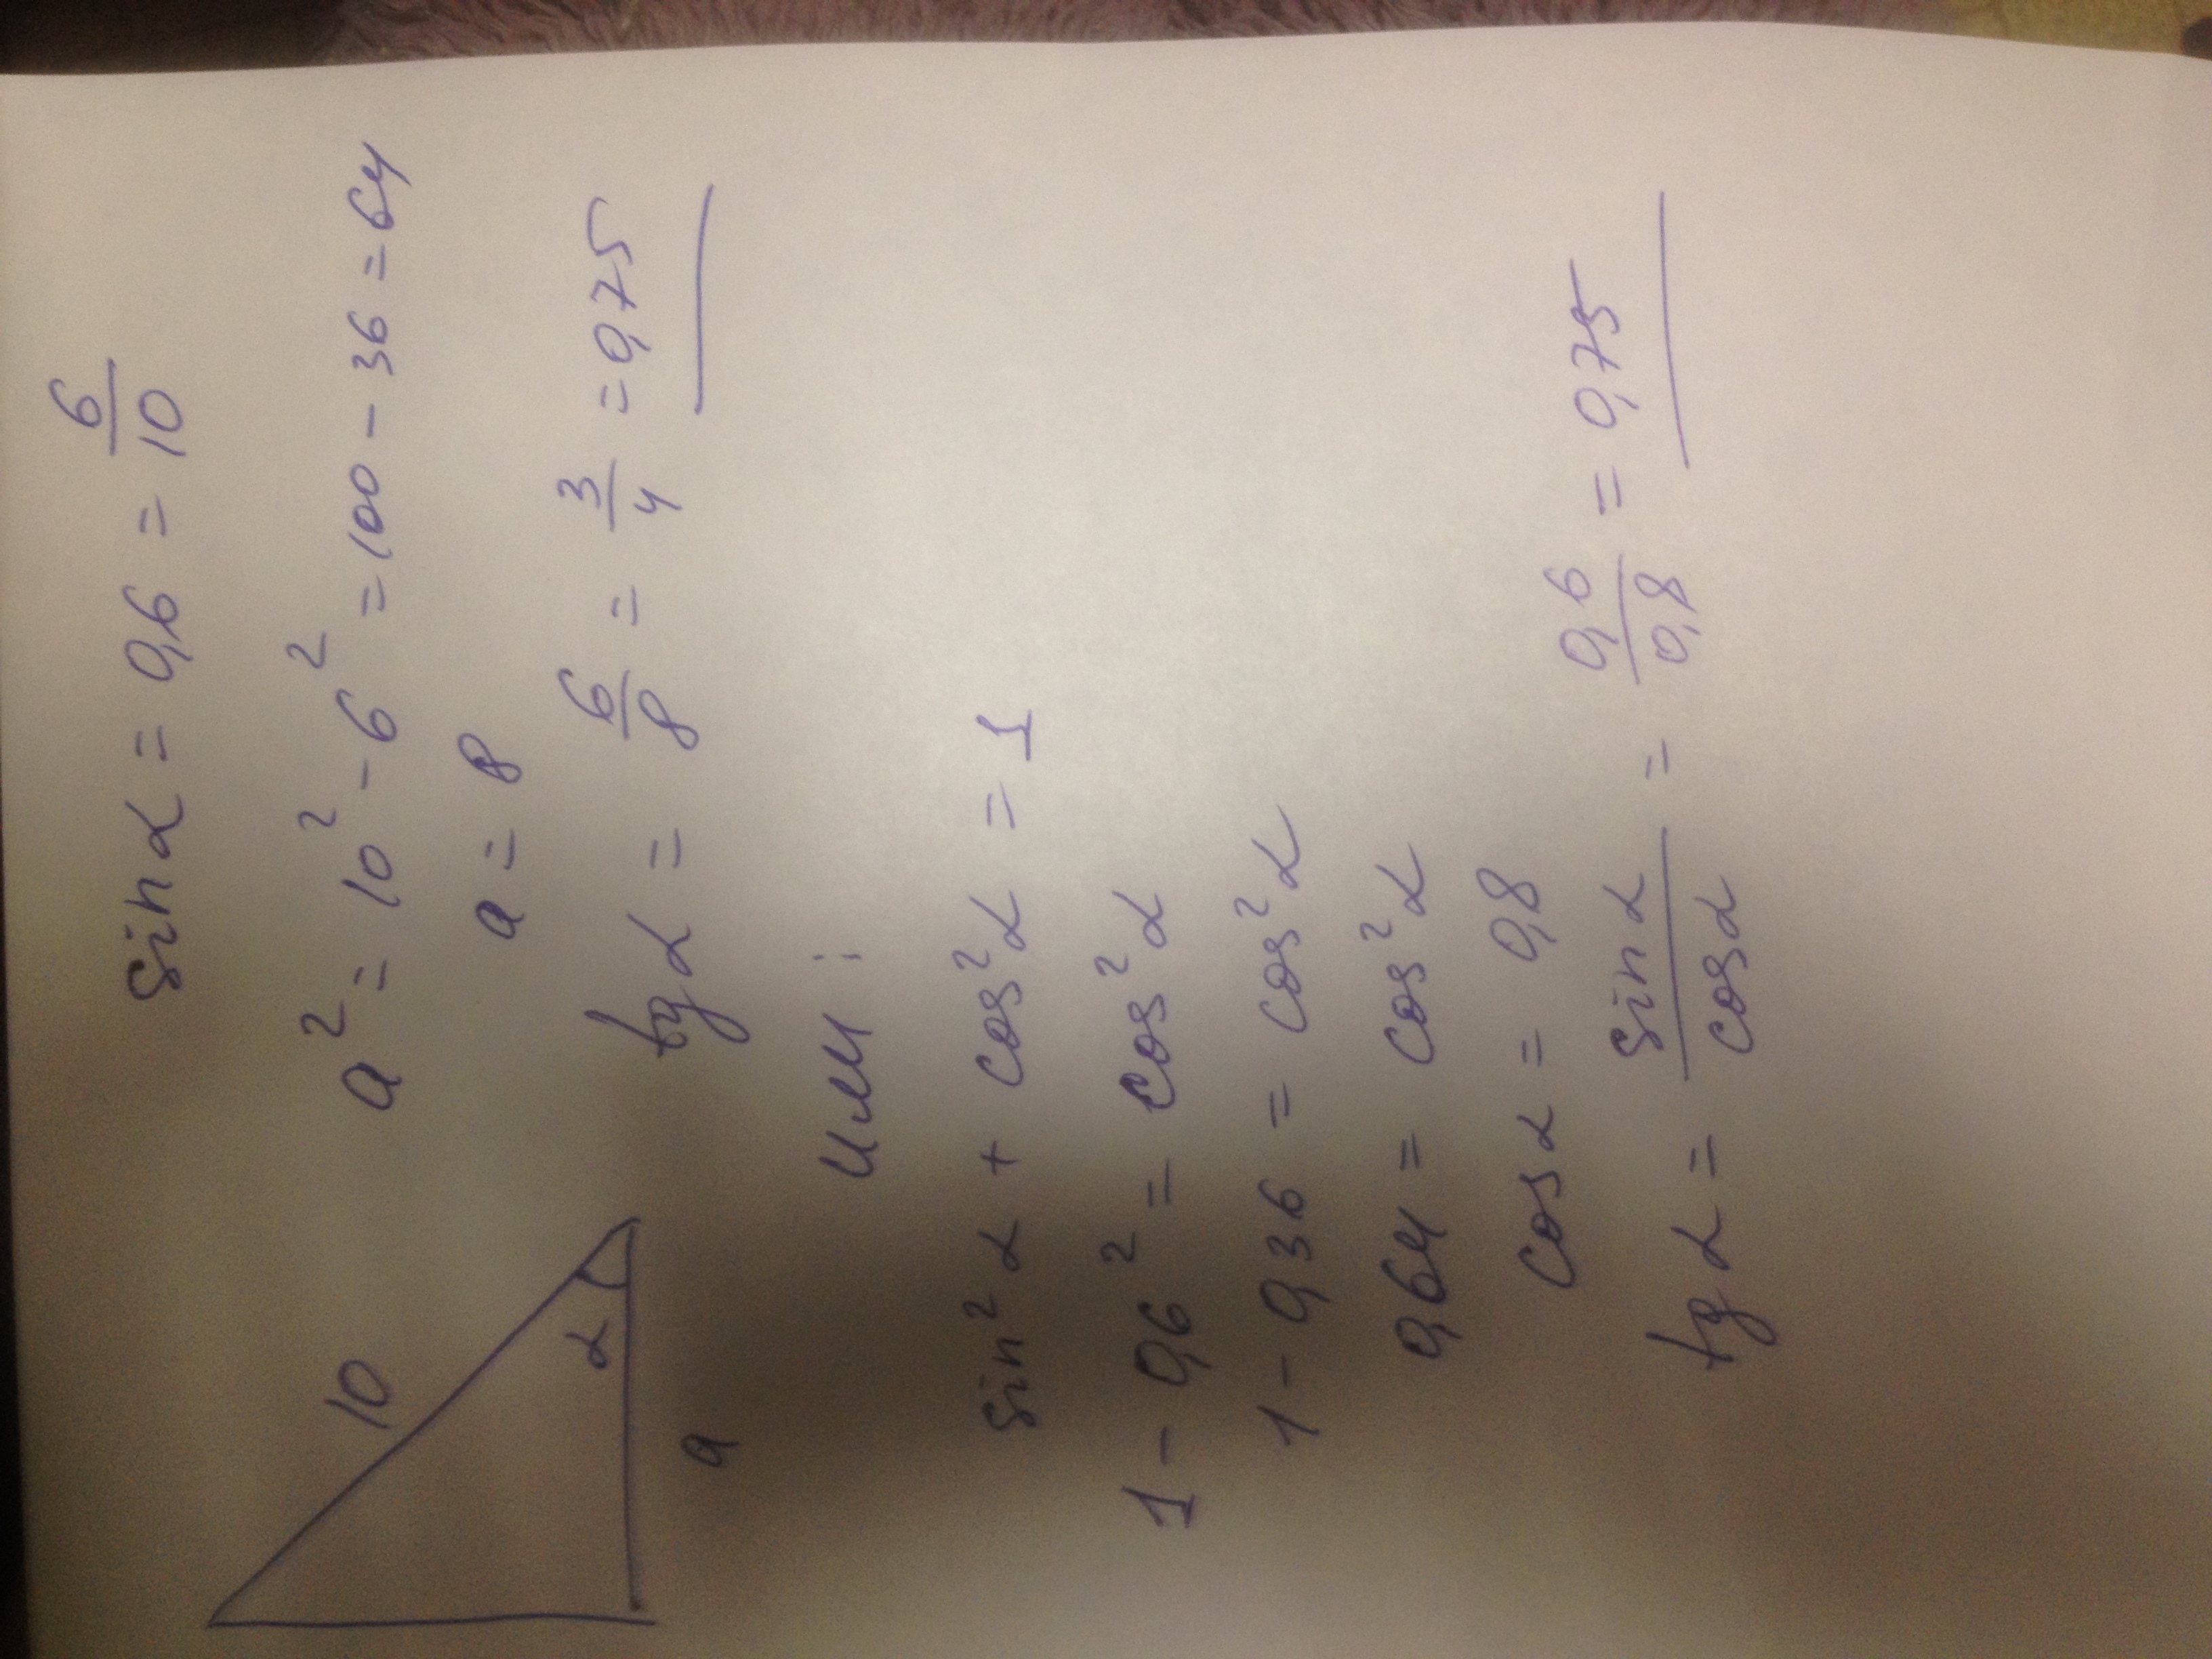 sin α = 0,6 = 6/10
10
α
a
a² = 10² - 6² = 100 - 36 = 64
a = 8
tg α = 6/8 = 3/4 = 0,75
или:
sin² α + cos² α = 1
1 - 0,6² = cos² α
1 - 0,36 = cos² α
0,64 = cos² α
cos α = 0,8
tg α = sin α/cos α = 0,6/0,8 = 0,75